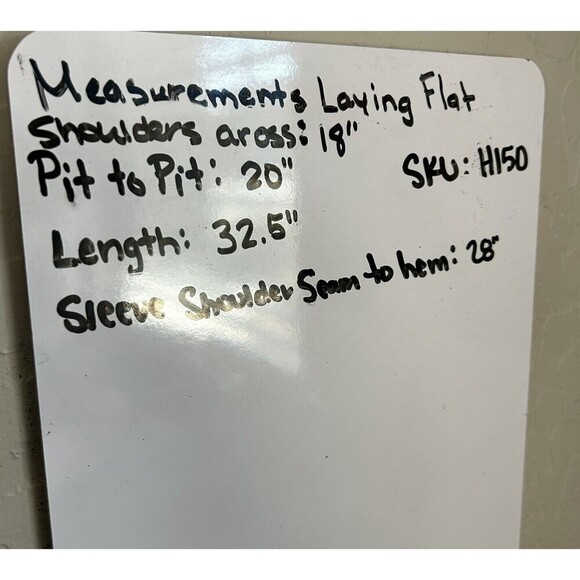 Measurements Laying Flat
Shoulders aross: 18"
Pit to Pit: 20"
SKU: H150
Length: 32.5"
Sleeve Shoulder Seam to hem: 28"